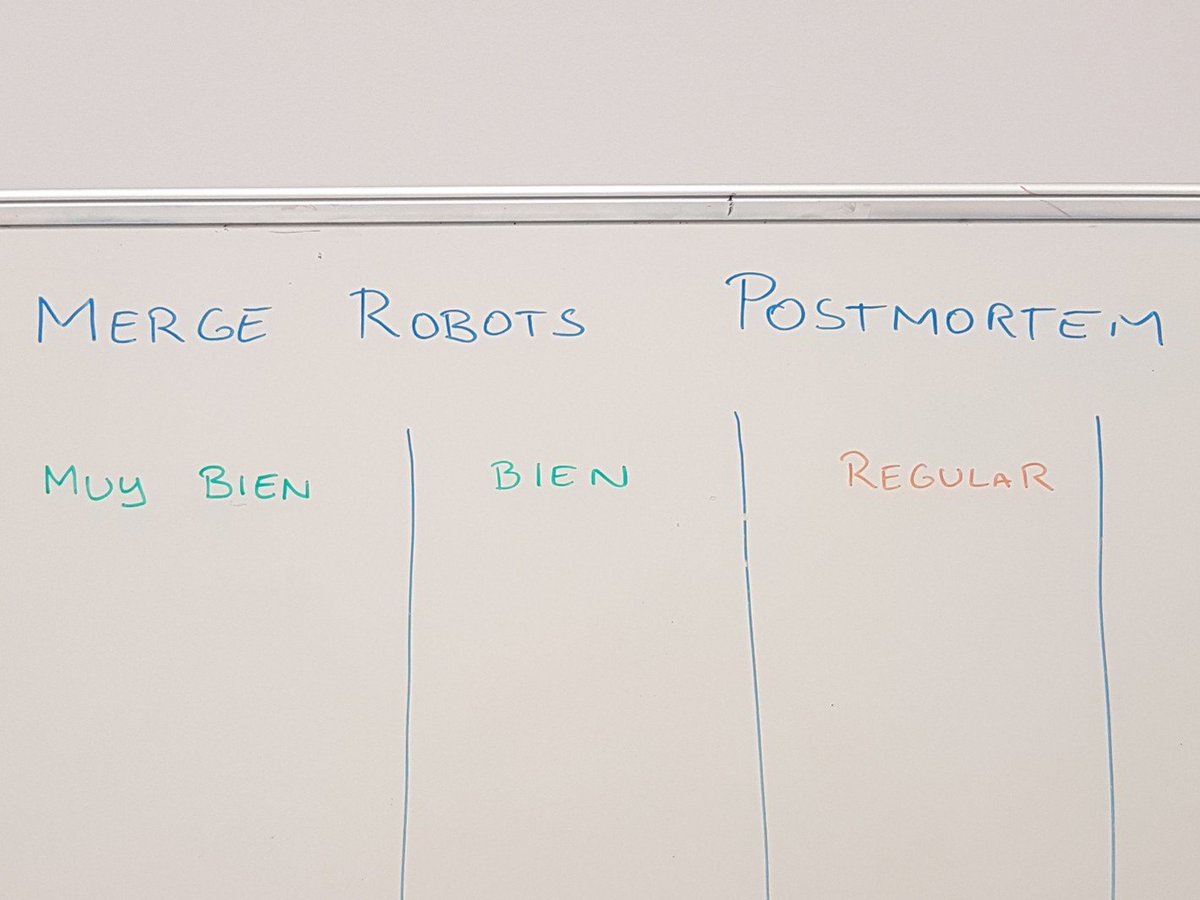 MERGE ROBOTS POSTMORTEM
MUY BIEN BIEN REGULAR